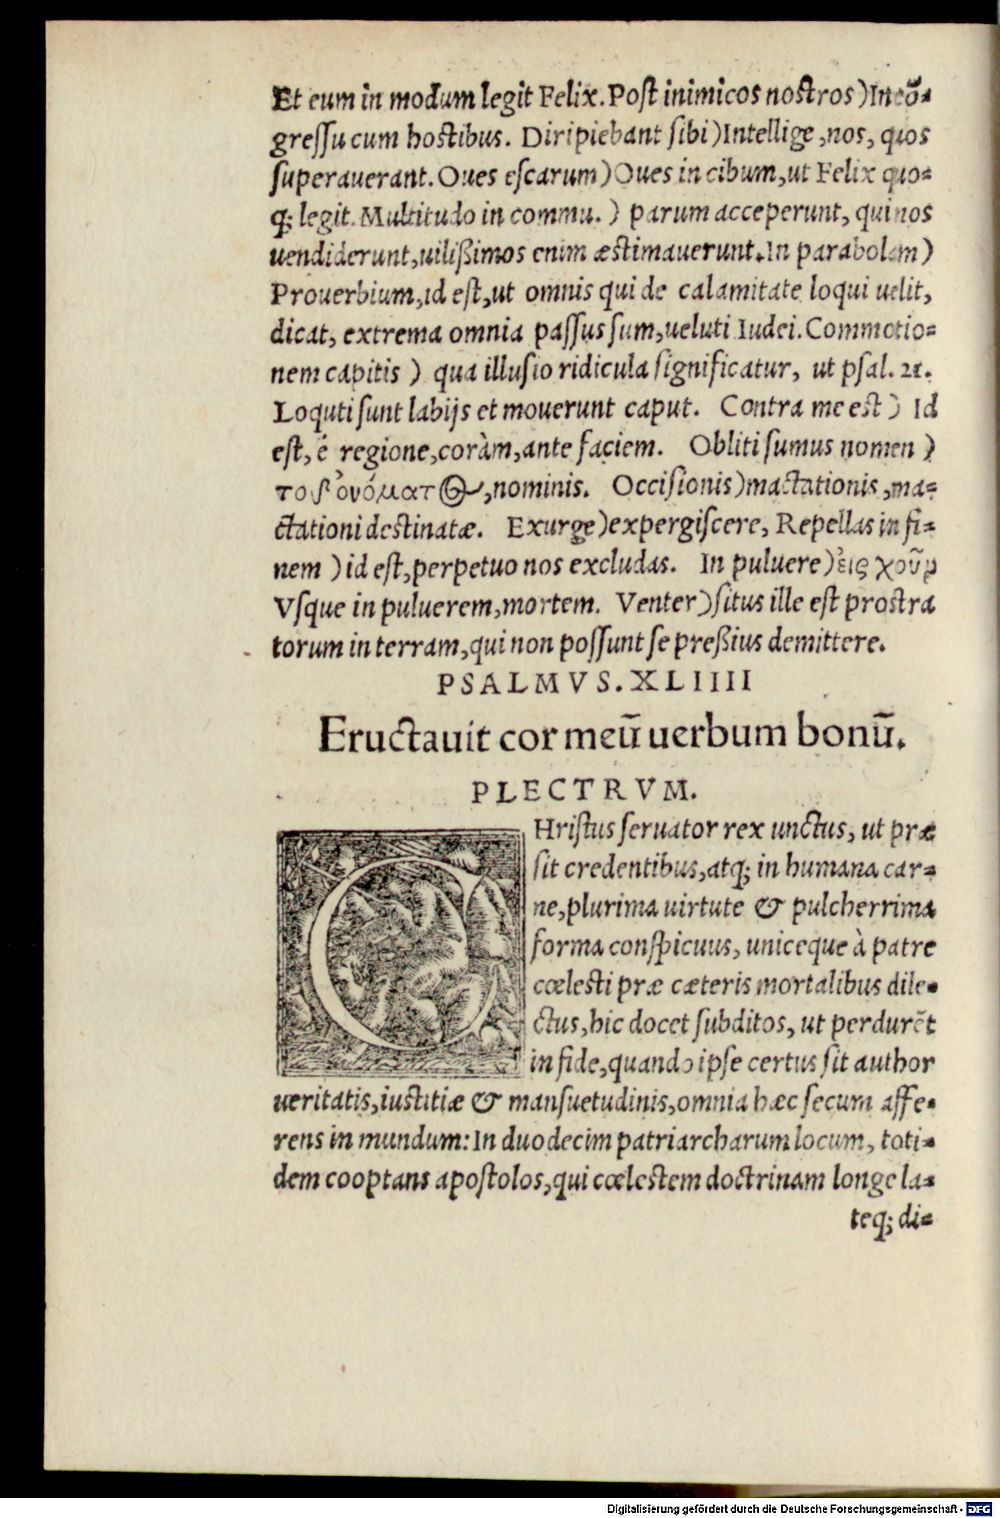 Et eum in modum legit Felix. Post inimicos nostros) In cō-
gressu cum hostibus. Diripiebant sibi) Intellige, nos, quos
superauerant. Oues escarum) Oues in cibum, ut Felix quo-
q; legit. Multitudo in commu. ) parum acceperunt, qui nos
uendiderunt, uilißimos enim æstimauerunt. In parabolam)
Prouerbium, id est, ut omnis qui de calamitate loqui uelit,
dicat, extrema omnia passus sum, ueluti Iudei. Commotio-
nem capitis ) qua illusio ridicula significatur, ut psal. 21.
Loquti sunt labijs et mouerunt caput. Contra me est ) Id
est, é regione, coràm, ante faciem. Obliti sumus nomen )
τοῦ ὀνόματος, nominis. Occisionis) mactationis, ma-
ctationi destinatæ. Exurge) expergiscere, Repellas in fi-
nem ) id est, perpetuo nos excludas. In puluere) εἰς χοῦν
Vsque in puluerem, mortem. Venter) situs ille est prostra
torum in terram, qui non possunt se preßius demittere.
PSALMVS. XLIIII
Eructauit cor meū uerbum bonū.
PLECTRVM.
CHristus seruator rex unctus, ut præ
sit credentibus, atq; in humana car-
ne, plurima uirtute & pulcherrima
forma conspicuus, uniceque à patre
cœlesti præ cæteris mortalibus dile-
ctus, hic docet subditos, ut perdurēt
in fide, quando ipse certus sit author
ueritatis, iustitiæ & mansuetudinis, omnia hæc secum affe-
rens in mundum: In duodecim patriarcharum locum, toti-
dem cooptans apostolos, qui cœlestem doctrinam longe la-
teq; di-
Digitalisierung gefördert durch die Deutsche Forschungsgemeinschaft - DFG